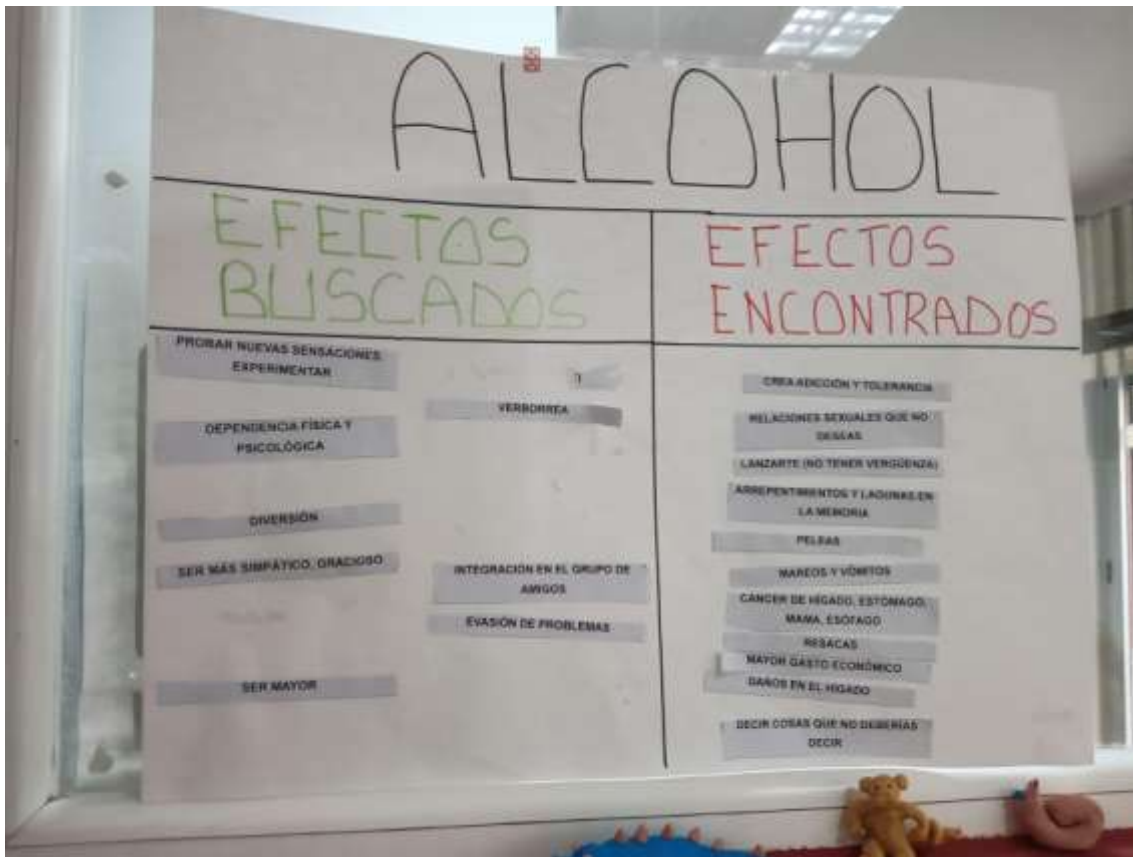 ALCOHOL
EFECTOS
BUSCADOS
PROBAR NUEVAS SENSACIONES
EXPERIMENTAR
DEPENDENCIA FÍSICA Y
PSICOLÓGICA
DIVERSIÓN
SER MÁS SIMPÁTICO, GRACIOSO
SER MAYOR
VERBORREA
INTEGRACIÓN EN EL GRUPO DE
AMIGOS
EVASIÓN DE PROBLEMAS
EFECTOS
ENCONTRADOS
CREA ADICCIÓN Y TOLERANCIA
RELACIONES SEXUALES QUE NO
DESEAS
LANZARTE (NO TENER VERGÜENZA)
ARREPENTIMIENTOS Y LAGUNAS EN
LA MEMORIA
PELEAS
MAREOS Y VÓMITOS
CÁNCER DE HÍGADO, ESTÓMAGO,
MAMA, ESÓFAGO
RESACAS
MAYOR GASTO ECONÓMICO
DAÑOS EN EL HÍGADO
DECIR COSAS QUE NO DEBERÍAS
DECIR